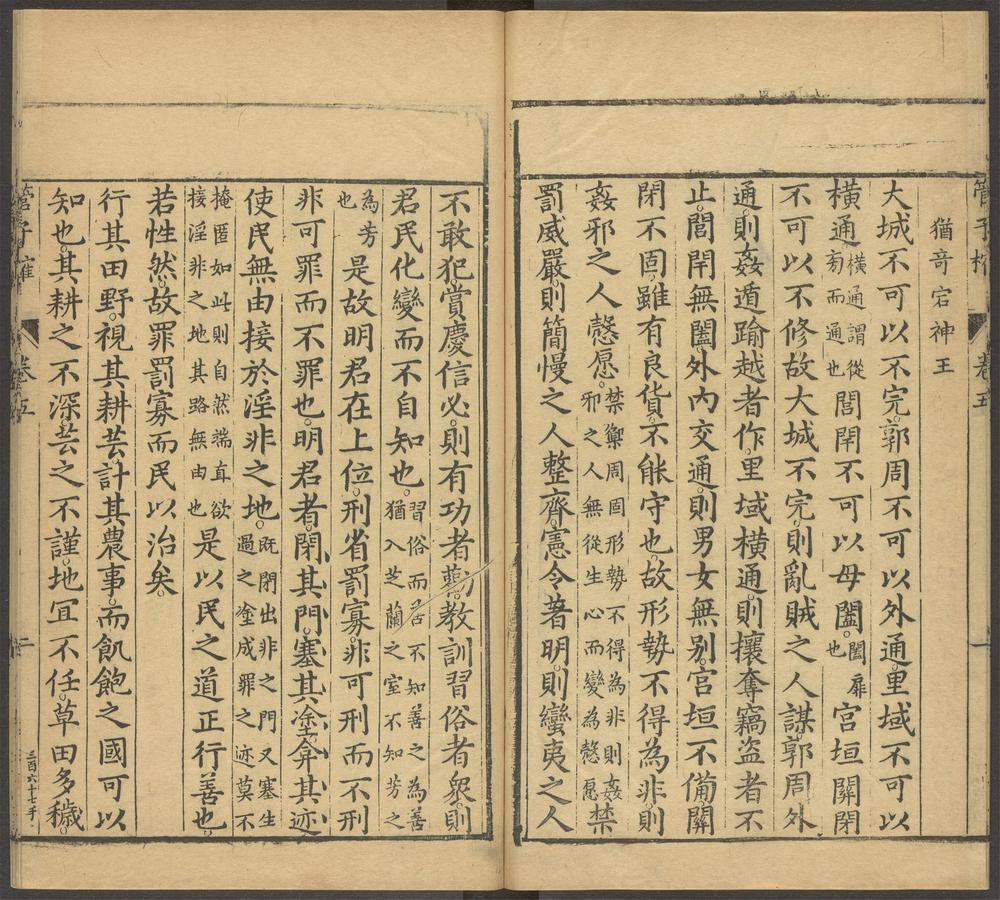 管子榷 卷五 一
猶奇宕神王
大城不可以不完郭周不可以外通里域不可以
橫通橫通謂從旁而通也閭閈不可以毋闔闔扉也宮垣關閉
不可以不修故大城不完則亂賊之人謀郭周外
通則姦遁踰越者作里域橫通則攘奪竊盜者不
止閭閈無闔外內交通則男女無別宮垣不備關
閉不固雖有良貨不能守也故形勢不得為非則
姦邪之人慤愿禁禦周固形勢不得為非則姦邪之人無從生心而變為慤愿禁
罰威嚴則簡慢之人整齊憲令著明則蠻夷之人
不敢犯賞慶信必則有功者勸教訓習俗者衆則
君民化變而不自知也習俗而善不知善之為善猶入芝蘭之室不知芳之
為芳也是故明君在上位刑省罰寡非可刑而不刑
非可罪而不罪也明君者閉其門塞其塗弇其迹
使民無由接於淫非之地既閉出非之門又塞生過之塗成罪之迹莫不
掩匿如此則自然端直欲接淫非之地其路無由也是以民之道正行善也
若性然故罪罰寡而民以治矣
行其田野視其耕芸計其農事而飢飽之國可以
知也其耕之不深芸之不謹地宜不任草田多穢
管子榷 卷五 一 三百六十七字